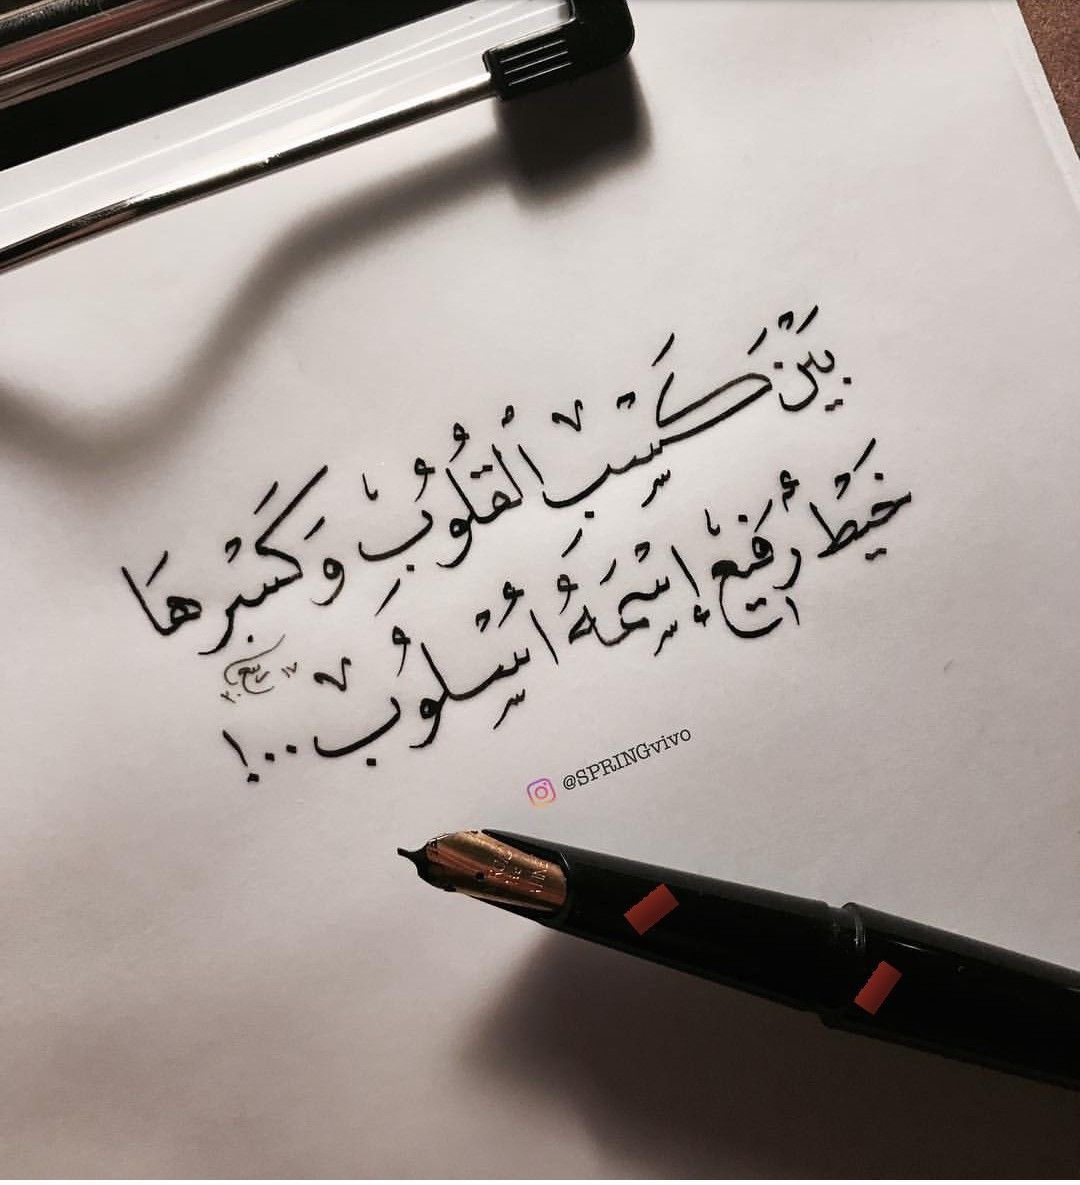 بَيْنَ كَسْبِ ٱلْقُلُوبِ وَكَسْرِهَا
خَيْطٌ رَفِيعٌ إِسْمُهُ أُسْلُوبٌ ..!
@SPRINGvivo